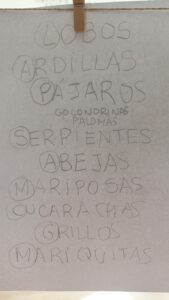 LOBOS
ARDILLAS
PÁJAROS
GOLONDRINAS
PALOMAS
SERPIENTES
ABEJAS
MARIPOSAS
CUCARACHAS
GRILLOS
MARIQUITAS